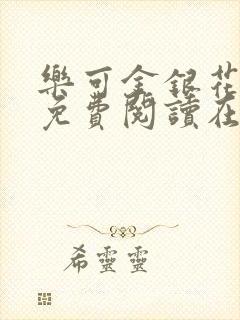 樂可金銀花
免費閱讀在
希靈靈